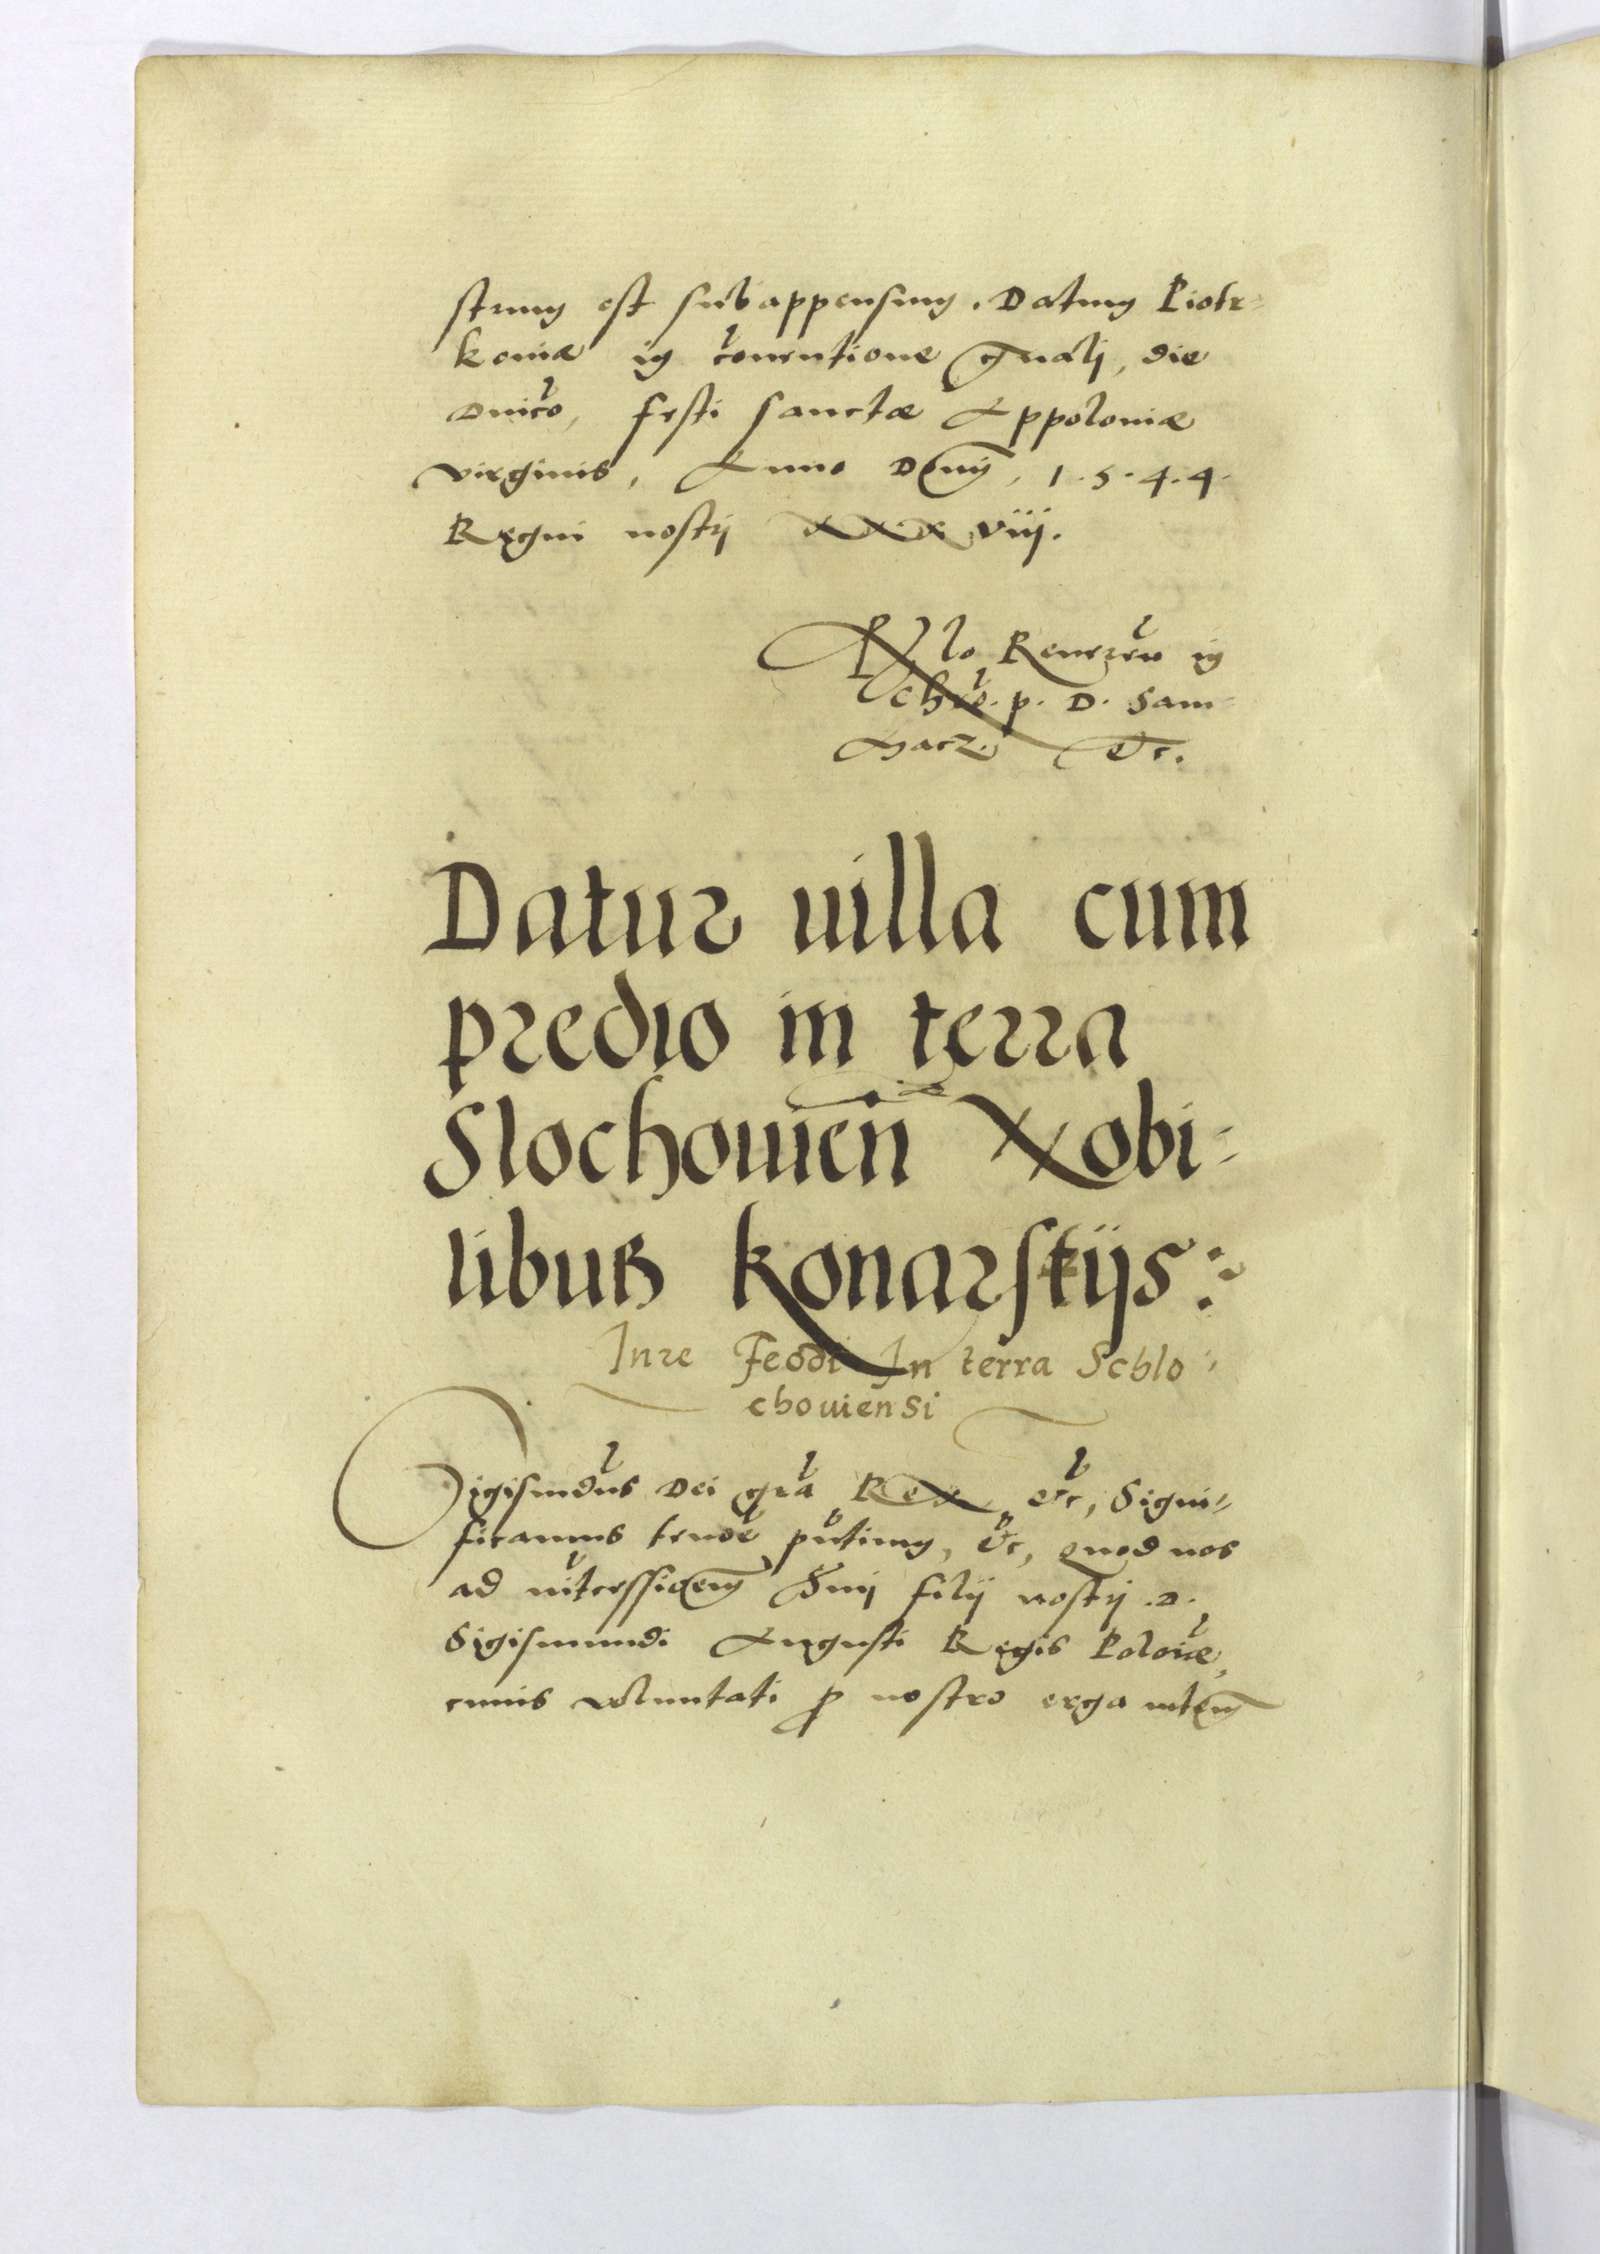 strum est subappensum. Datum Piotr=
koviæ in conventione gnali, die
Dnico, festi sanctæ Appoloniæ
virginis, Anno Domij, 1.5.4.4.
Regni nostrj XXXviij.
Rlo Revren in
Chro. p. D. Sam
Macz. etc.
Datur uilla cum
predio in terra
Slochouien Nobi=
libus Konarstijs:
Jure Feodi In terra Schlo
chouiensi
Sigismdus Dei gra Rex, etc, Signi=
ficamus tenore pntium, etc, quod nos
ad intercessionem Smi filij nostrj .D.
Sigismundi Augusti Regis Polonæ,
cuius voluntati p nostro erga